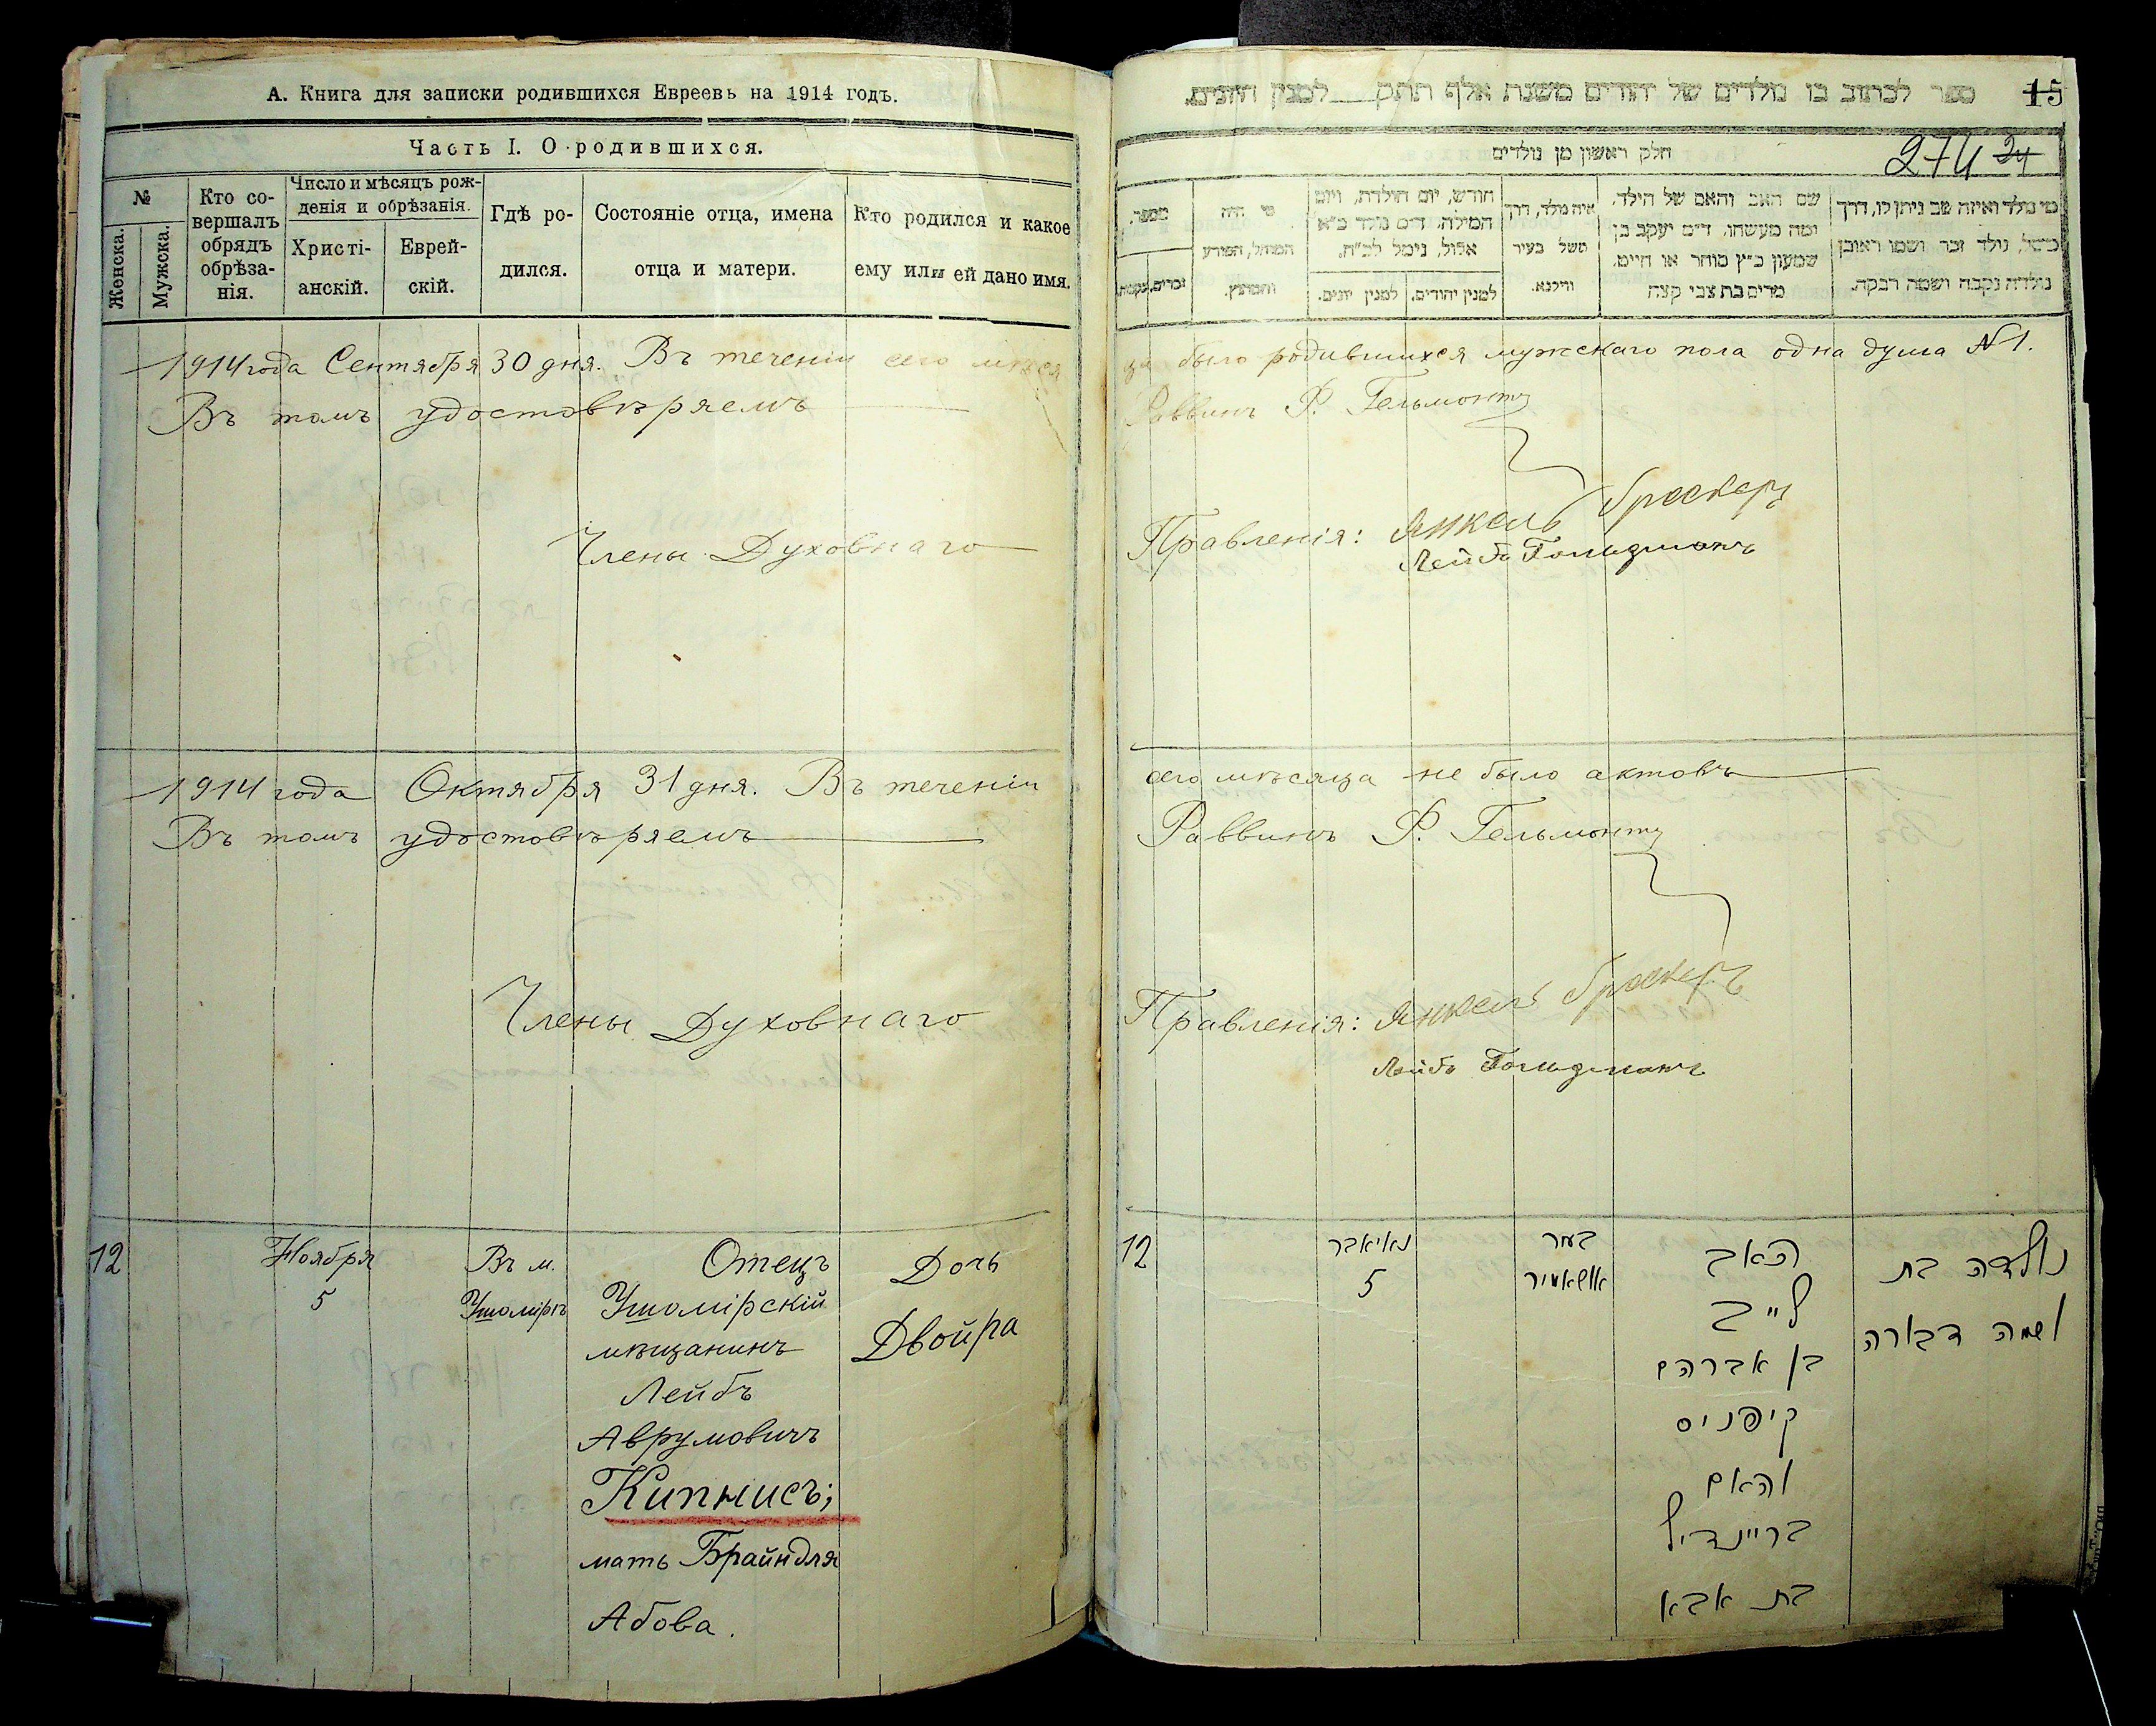 А. Книга для записки родившихся Евреевъ на 1914 годъ.
Часть I. О родившихся.
№
Женска.
Мужска.
Кто со-
вершалъ
обрядъ
обрѣза-
нія.
Число и мѣсяцъ рож-
денія и обрѣзанія.
Христі-
анскій.
Еврей-
скій.
Гдѣ ро-
дился.
Состояніе отца, имена
отца и матери.
Кто родился и какое
ему или ей дано имя.
1914 года Сентября 30 дня. Въ теченіи сего мѣся
Въ томъ удостовѣряемъ
Члены Духовнаго
1914 года Октября 31 дня. Въ теченіи
Въ томъ удостовѣряемъ
Члены Духовнаго
12
Ноября
5
Въ м.
Ушомірѣ
Отецъ
Ушомірскій
мѣщанинъ
Лейбъ
Аврумовичъ
Кипнисъ;
мать Брайндля
Абова.
Дочь
Двойра
ספר לכתוב בו נולדים של יהודים משנת אלף תתק למנין היונים.
15
חלק ראשון מן נולדים
274 24
מספר.
זכרים.
נקבות.
מי היה
המוהל, הפורע
והמוצץ.
חודש, יום הולדת, ויום
המילה. ד״מ נולד כ״א
אלול, נימל לכ״ח.
למנין יונים.
למנין יהודים.
איה נולד, דרך
משל בעיר
ווילנא.
שם האב והאם של הילד.
ומה מעשהו. ד״מ יעקב בן
שמעון כ״ץ סוחר או חייט.
מרים בת צבי קצה
מי נולד ואיזה שם ניתן לו, דרך
משל, נולד זכר ושמו ראובן
נולדה נקבה ושמה רבקה.
ца было родившихся мужскаго пола одна душа №1.
Раввинъ Р. Гельмонтъ
Правленія: Янкель
Лейбъ Гольдманъ
сего мѣсяца не было актовъ
Раввинъ Р. Гельмонтъ
Правленія: Янкель
Лейбъ Гольдманъ
12
נאיאבר
5
בעיר
אושאמיר
האב
לייב
בן אברהם
קיפניס
והאם
בריינדיל
בת אבא
נולדה בת
ושמה דבורה